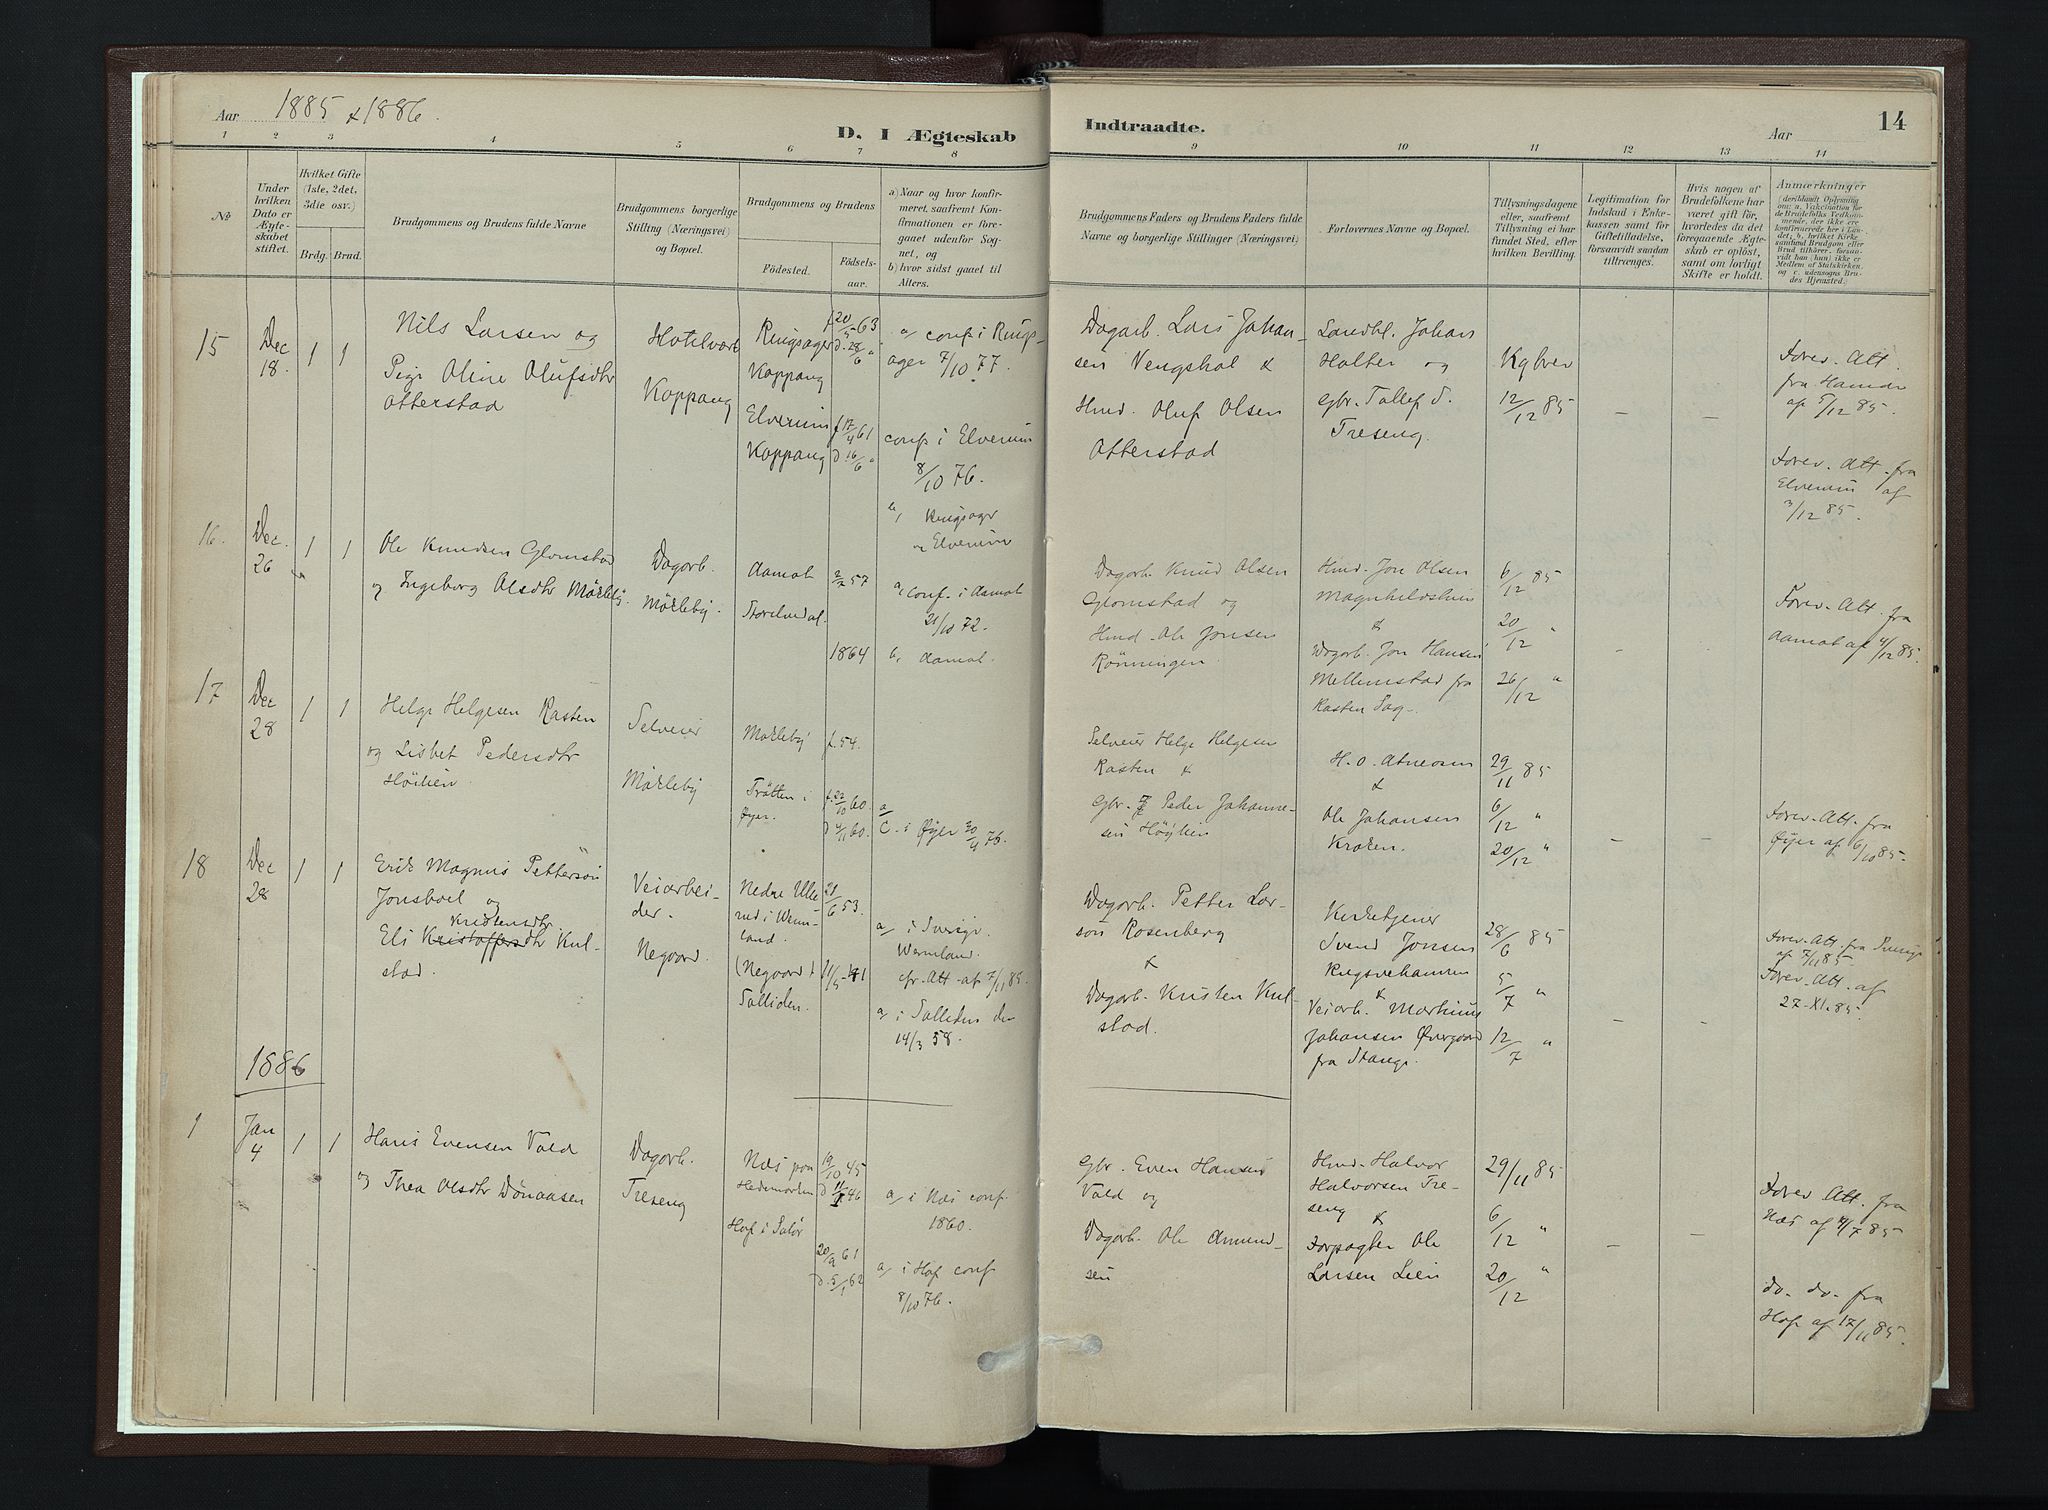 Aar 1885 & 1886.
D. I Ægteskab
Indtraadte.
Aar
14
1 2 3 4 5 6 7 8 9 10 11 12 13 14
№
Under hvilken Dato er Ægteskabet stiftet.
Hvilket Gifte (1ste, 2det, 3die osv.)
Brdg. Brud.
Brudgommens og Brudens fulde Navne
Brudgommens borgerlige Stilling (Næringsvei) og Bopæl.
Brudgommens og Brudens
Födested.
Födselsaar.
a) Naar og hvor konfirmeret, saafremt Konfirmationen er foregaaet udenfor Sognet, og
b) hvor sidst gaaet til Alters.
Brudgommens Faders og Brudens Faders fulde Navne og borgerlige Stillinger (Næringsvei)
Forlovernes Navne og Bopæl.
Tillysningsdagene eller, saafremt Tillysning ei har fundet Sted, efter hvilken Bevilling.
Legitimation for Indskud i Enkekassen samt for Giftetilladelse, forsaavidt saadan tiltrænges.
Hvis nogen af Brudefolkene har været gift för, hvorledes da det foregaaende Ægteskab er oplöst, samt om lovligt Skifte er holdt.
Anmærkninger (deriblandt Oplysning om: a. Vakcination for de Brudefolks Vedkommende, der ikke ere konfirmerede her i Landet; b. hvilket Kirkesamfund Brudgom eller Brud tilhører, forsaavidt han (hun) ikke er Medlem af Statskirken, og c. udensogns Brudes Hjemsted.)
15
Dec 18.
1 1
Nils Larsen og
Oline Olufsdtr
Otterstad
Hotelvært
Koppang
Ringsager
Koppang
Elverum
Koppang
f 20/5 63
d. 28/6 "
f 17/4 61
d 16/6 "
a/ conf i Rings-
ager 7/10 77.
conf i Elverum
8/10 76.
b, Ringsager
og Elverum
Dagarb. Lars Johan-
sen Vengshol &
Hmd. Oluf Olsen
Otterstad
Landhl. Johan
Halter og
Gbr. Tollef
Treseng.
Kgbrev
12/12 85
–
–
Forev. Att.
fra Hamar
af 5/12 85.
Forev. Att. fra
Elverum af
3/12 85.
16.
Dec. 26
1 1
Ole Knudsen Glomstad
og Ingeborg Olsdtr Mörleby.
Dagarb.
Mörleby.
Aamot
Storelvedal.
2/2 57
1864
a, conf. i Aamot
21/10 72.
b, Aamot.
Dagarb. Knud Olsen
Glomstad og
Hmd. Ole Jonsen
Rönningen.
Hmd. Jon Olsen
&
Dagarb. Jon Hansen
Mellemstad fra
Kasten Sag.
6/12 85
20/12 "
26/12 "
–
–
Forev. Att. fra
Aamot af 4/12 85.
17
Dec 28
1 1
Helge Helgesen Rasten
og Lisbet Pedersdtr
Höihen
Selveier
Mörleby
Mörleby
Trötten i
Øyer.
f. 54.
f. 22/10 60.
d 4/11 60.
a
C. i Øyer 30/4 76.
Selveier Helge Helgesen
Rasten &
Gbr. Peder Johanne-
sen Höyhin
H. O. Atneosen
&
Ole Johansen
Kroken.
29/11 85
6/12 "
20/12 "
–
–
Forev. Att. fra
Øyer af 6/10 85.
18
Dec 28
1 1
Erik Magnus Petterson
Jonsboel og
Kristensdtr
Eli Kristoffersdtr Kul-
stad.
Veiarbei-
der.
Negaard.
Nedre Ulle-
rud i Werm-
land.
(Negaard)
Solliden.
21/6 53.
f 1/5 41
a/ i Sverige.
Wermland.
cfr. Att. af 7/11 85.
a/ i Solliden den
14/3 58.
Dagarb. Petter Lar-
son Rosenberg
&
Dagarb. Kristen Kul-
stad.
Kirketjener
Svend Jonsen
&
Veiarb. Markinus
Johansen Øvergaard
fra Stange.
28/6 85
5/7 "
12/7 "
–
–
Forev. Att. fra Sverige
af 7/11 85
Forev. Att. af
27-XI.85.
1886
1
Jan 4
1 1
Hans Evensen Vold
og Thea Olsdtr Dönaasen
Dagarb.
Treseng
Næs paa
Hedemarken
Hof i Solör
19/10 45
20/9 61
d. 5/1 62
a/ i Næs conf.
1860.
a/ i Hof conf
8/10 76.
Gbr. Even Hansen
Vold og
Dagarb. Ole Amund-
sen
Hmd. Halvor
Halvorsen Tre-
seng &
Forpagter Ole
Larsen Lien
29/11 85
6/12 "
20/12 "
–
–
Forev. Att. fra
Næs af 4/7 85
do. do. fra
Hof af 17/11 85.